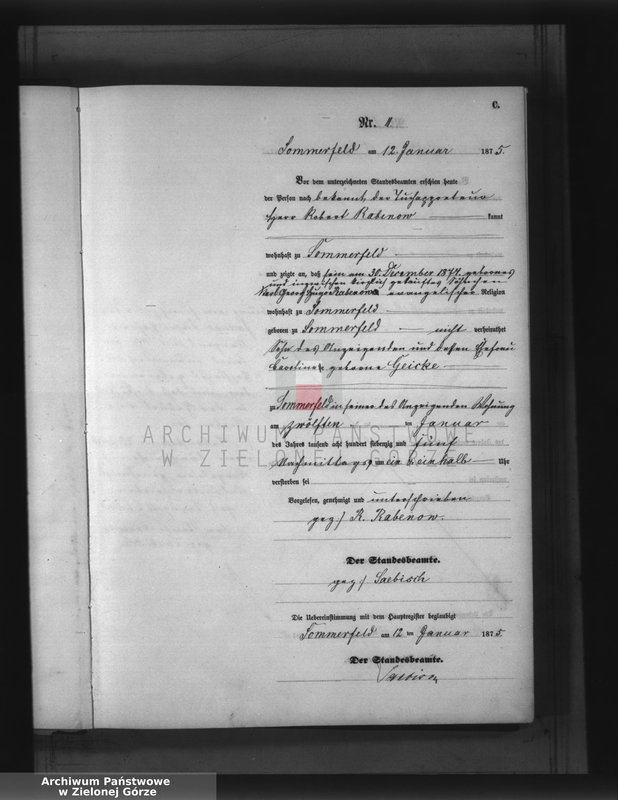 C.
Nr. 11
Sommerfeld am 12. Januar 1875.
Vor dem unterzeichneten Standesbeamten erschien heute
der Person nach bekannt, der Tuchappreteur
Herr Robert Rabenow kannt
wohnhaft zu Sommerfeld
und zeigte an, daß sein am 30. December 1874 geborenes
und inzwischen kirchlich getauftes Söhnchen
Karl Georg Hugo Rabenow evangelischer Religion
wohnhaft zu Sommerfeld
geboren zu Sommerfeld nicht verheirathet
Sohn des Anzeigenden und dessen Ehefrau
Caroline geborne Geicke
zu Sommerfeld in seiner des Anzeigenden Wohnung
am zwölften ten Januar
des Jahres tausend acht hundert siebenzig und fünf
Nachmittags um ein ein halb Uhr
verstorben sei
Vorgelesen, genehmigt und unterschrieben
gez.) R. Rabenow.
Der Standesbeamte.
gez.) Saebisch
Die Uebereinstimmung mit dem Hauptregister beglaubigt
Sommerfeld am 12 ten Januar 1875.
Der Standesbeamte.
Saebisch
ARCHIWUM PAŃSTWOWE
W ZIELONEJ GÓRZE
Archiwum Państwowe
w Zielonej Górze